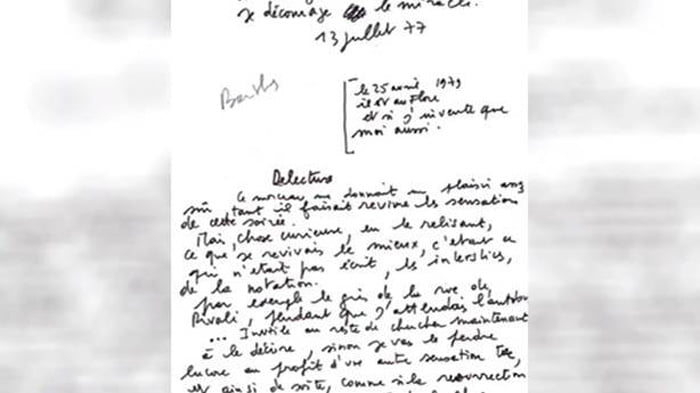 je décourage le miracle.
13 juillet 77
Barthes
le 25 avril 1979
il est au Flore
et si j'invente que
moi aussi.
Delecture
Ce morceau me donnait un plaisir assez
sûr tant il faisait revivre les sensations
de cette soirée.
Mais, chose curieuse, en le relisant,
ce que je revivais le mieux, c'était ce
qui n'était pas écrit, les interstices,
de la notation.
par exemple le gris de la rue de
Rivoli, pendant que j'attendais l'autobus
... Inutile au reste de chercher maintenant
à le décrire, sinon je vais le perdre
encore au profit d'une autre sensation
et ainsi de suite, comme si la resurrection